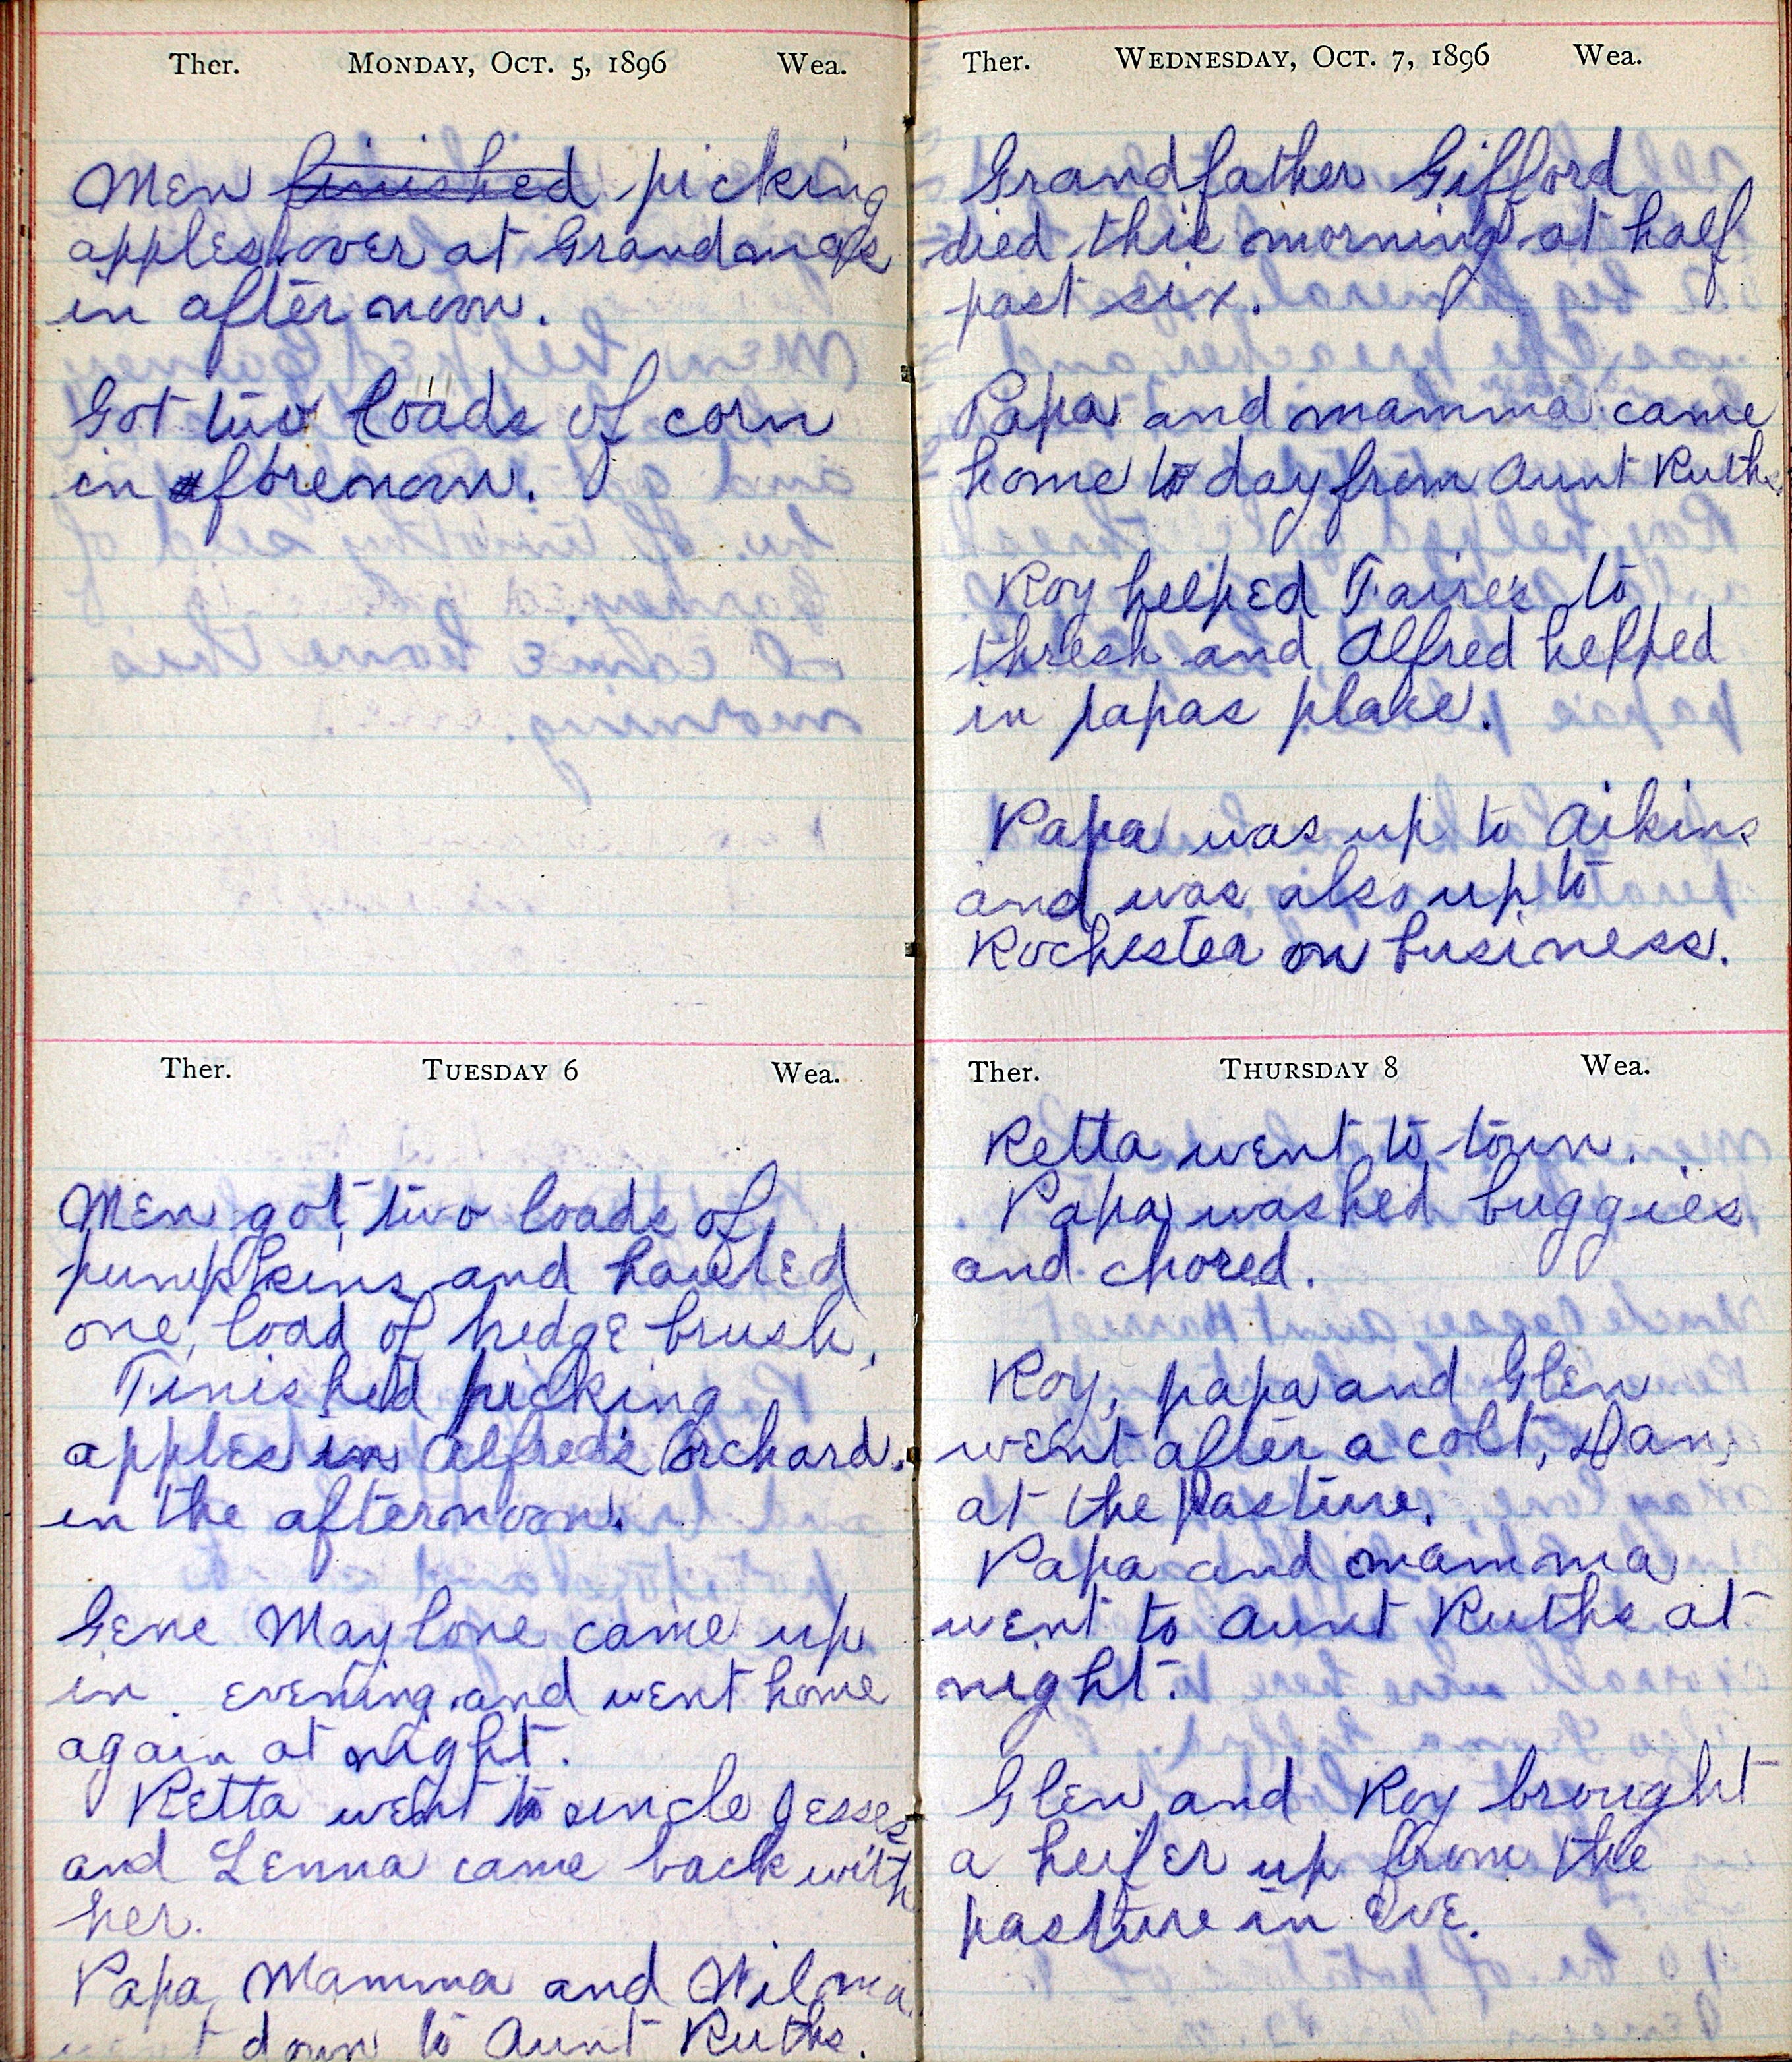 Ther. MONDAY, OCT. 5, 1896 Wea.
Men finished picking
apples over at Grandma's
in afternoon.
Got two loads of corn
in forenoon.
Ther. TUESDAY 6 Wea.
Men got two loads of
pumpkins and hauled
one load of hedge brush.
Finished picking
apples in Alfred's Orchard.
in the afternoon.
Gene Maylone came up
in evening and went home
again at night.
Retta went to uncle Jesses
and Lenna came back with
her.
Papa, Mamma and Wilma
went down to Aunt Ruths.
Ther. WEDNESDAY, OCT. 7, 1896 Wea.
Grandfather Gifford
died this morning at half
past six.
Papa and mamma came
home to day from Aunt Ruths
Roy helped Faires to
thresh and Alfred helped
in papas place.
Papa was up to Aikins
and was also up to
Rochester on business.
Ther. THURSDAY 8 Wea.
Retta went to town.
Papa washed buggies
and chored.
Roy, papa and Glen
went after a colt, Dan,
at the pasture.
Papa and mamma
went to Aunt Ruths at
night.
Glen and Roy brought
a heifer up from the
pasture in eve.